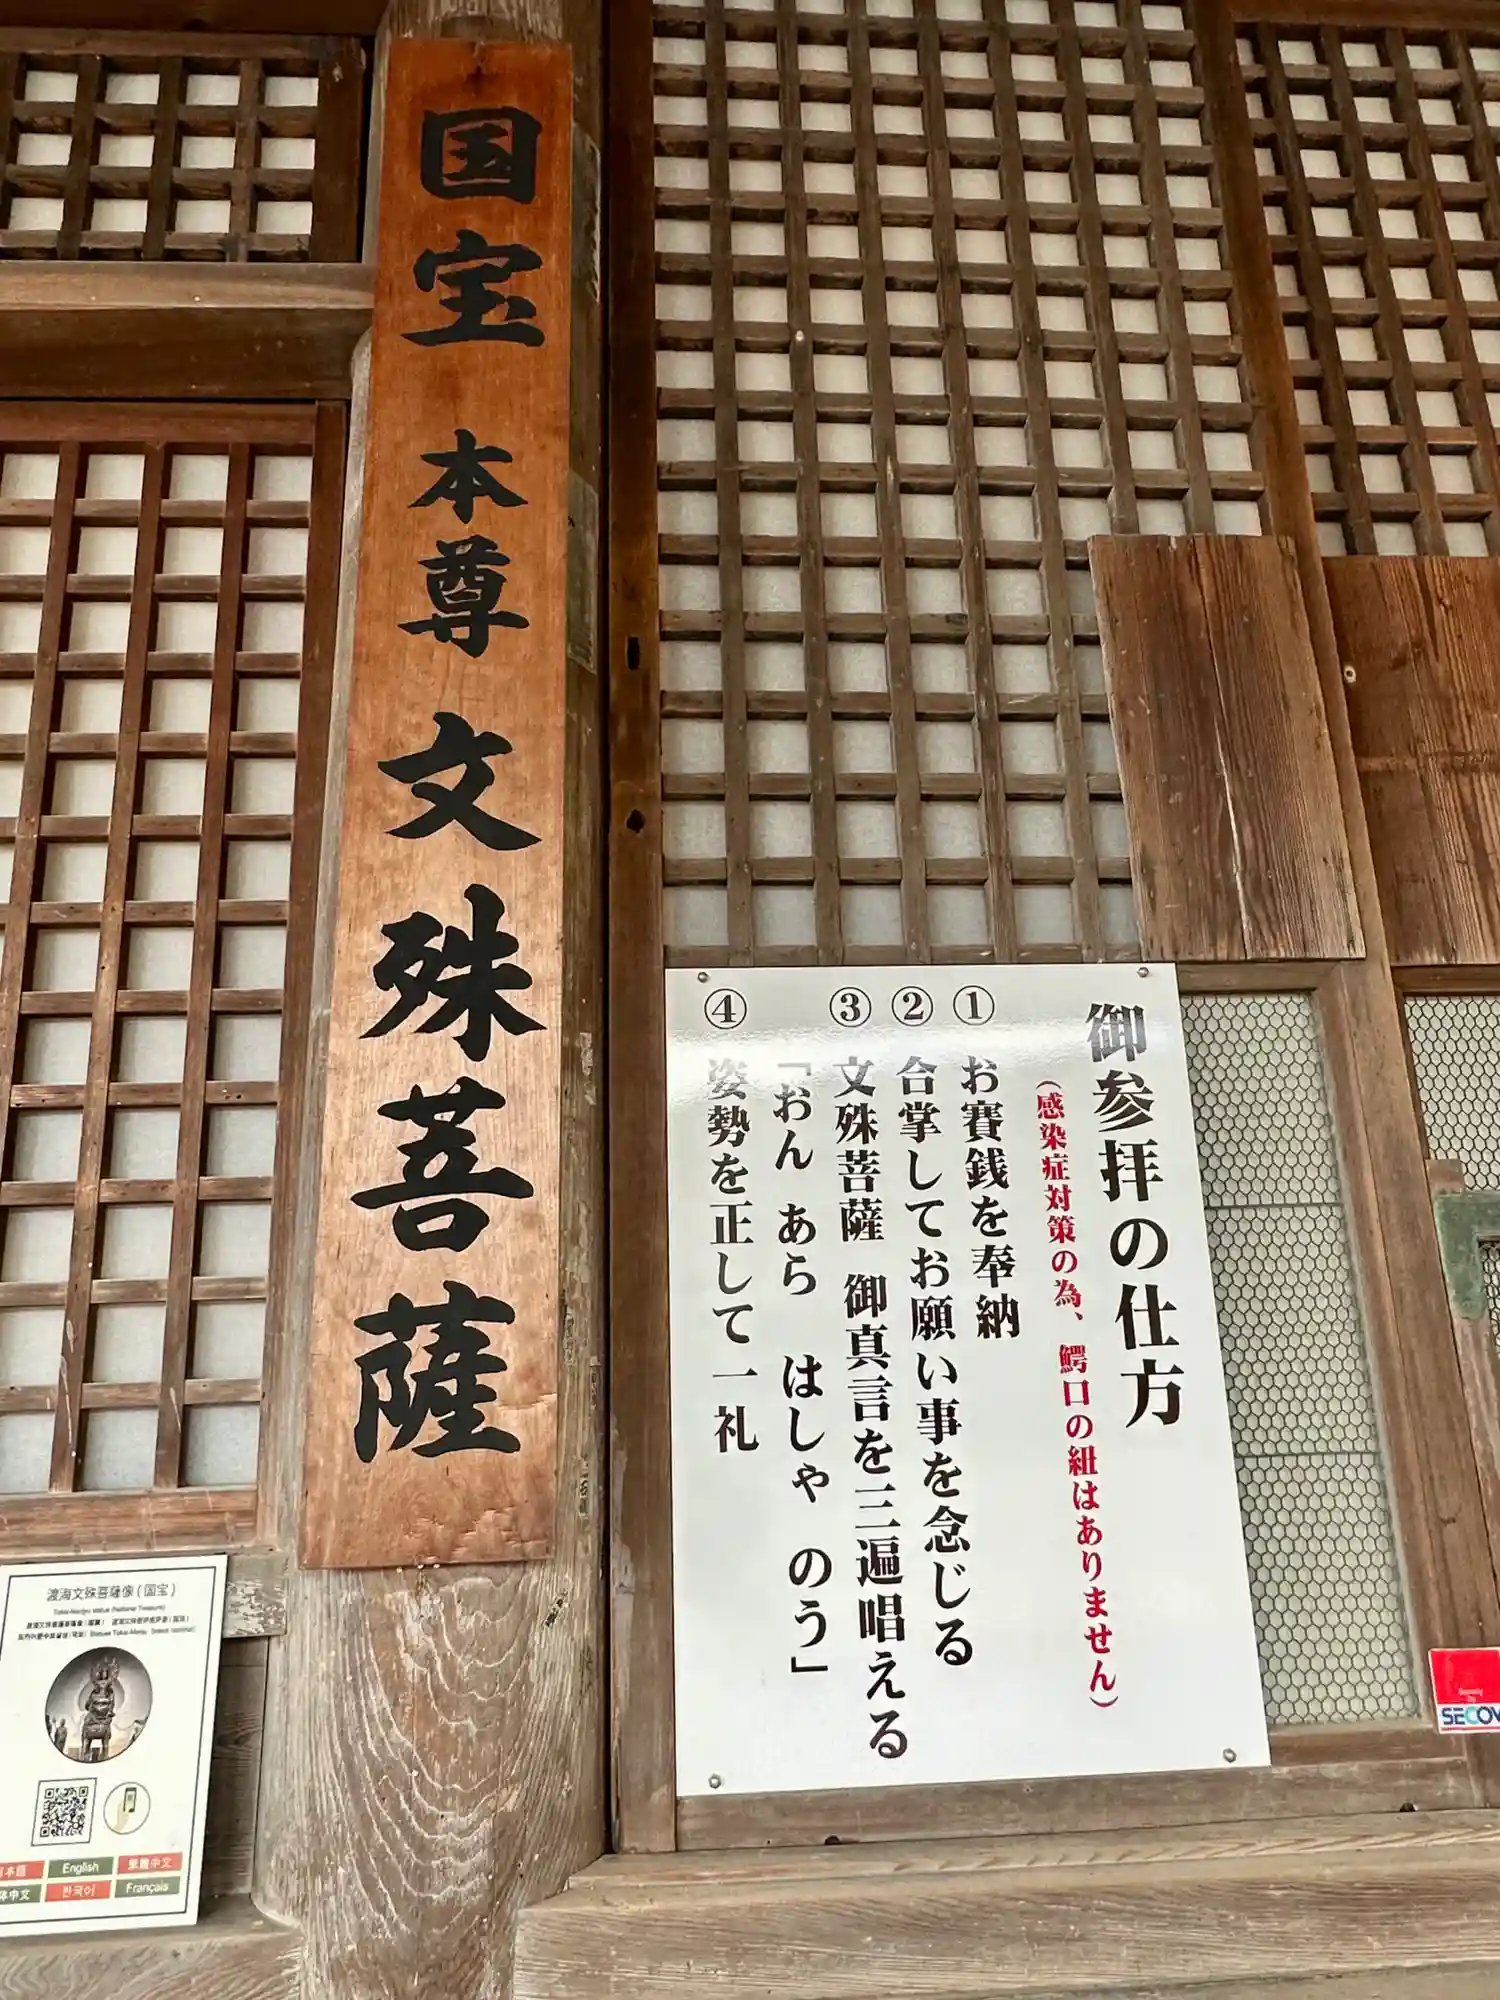 国宝 本尊 文殊菩薩
御参拝の仕方
(感染症対策の為、鰐口の紐はありません)
① お賽銭を奉納
② 合掌してお願い事を念じる
③ 文殊菩薩 御真言を三遍唱える
「おん あら はしゃ のう」
④ 姿勢を正して一礼
渡海文殊菩薩像(国宝)
English
繁體中文
한국어
Français
SECO